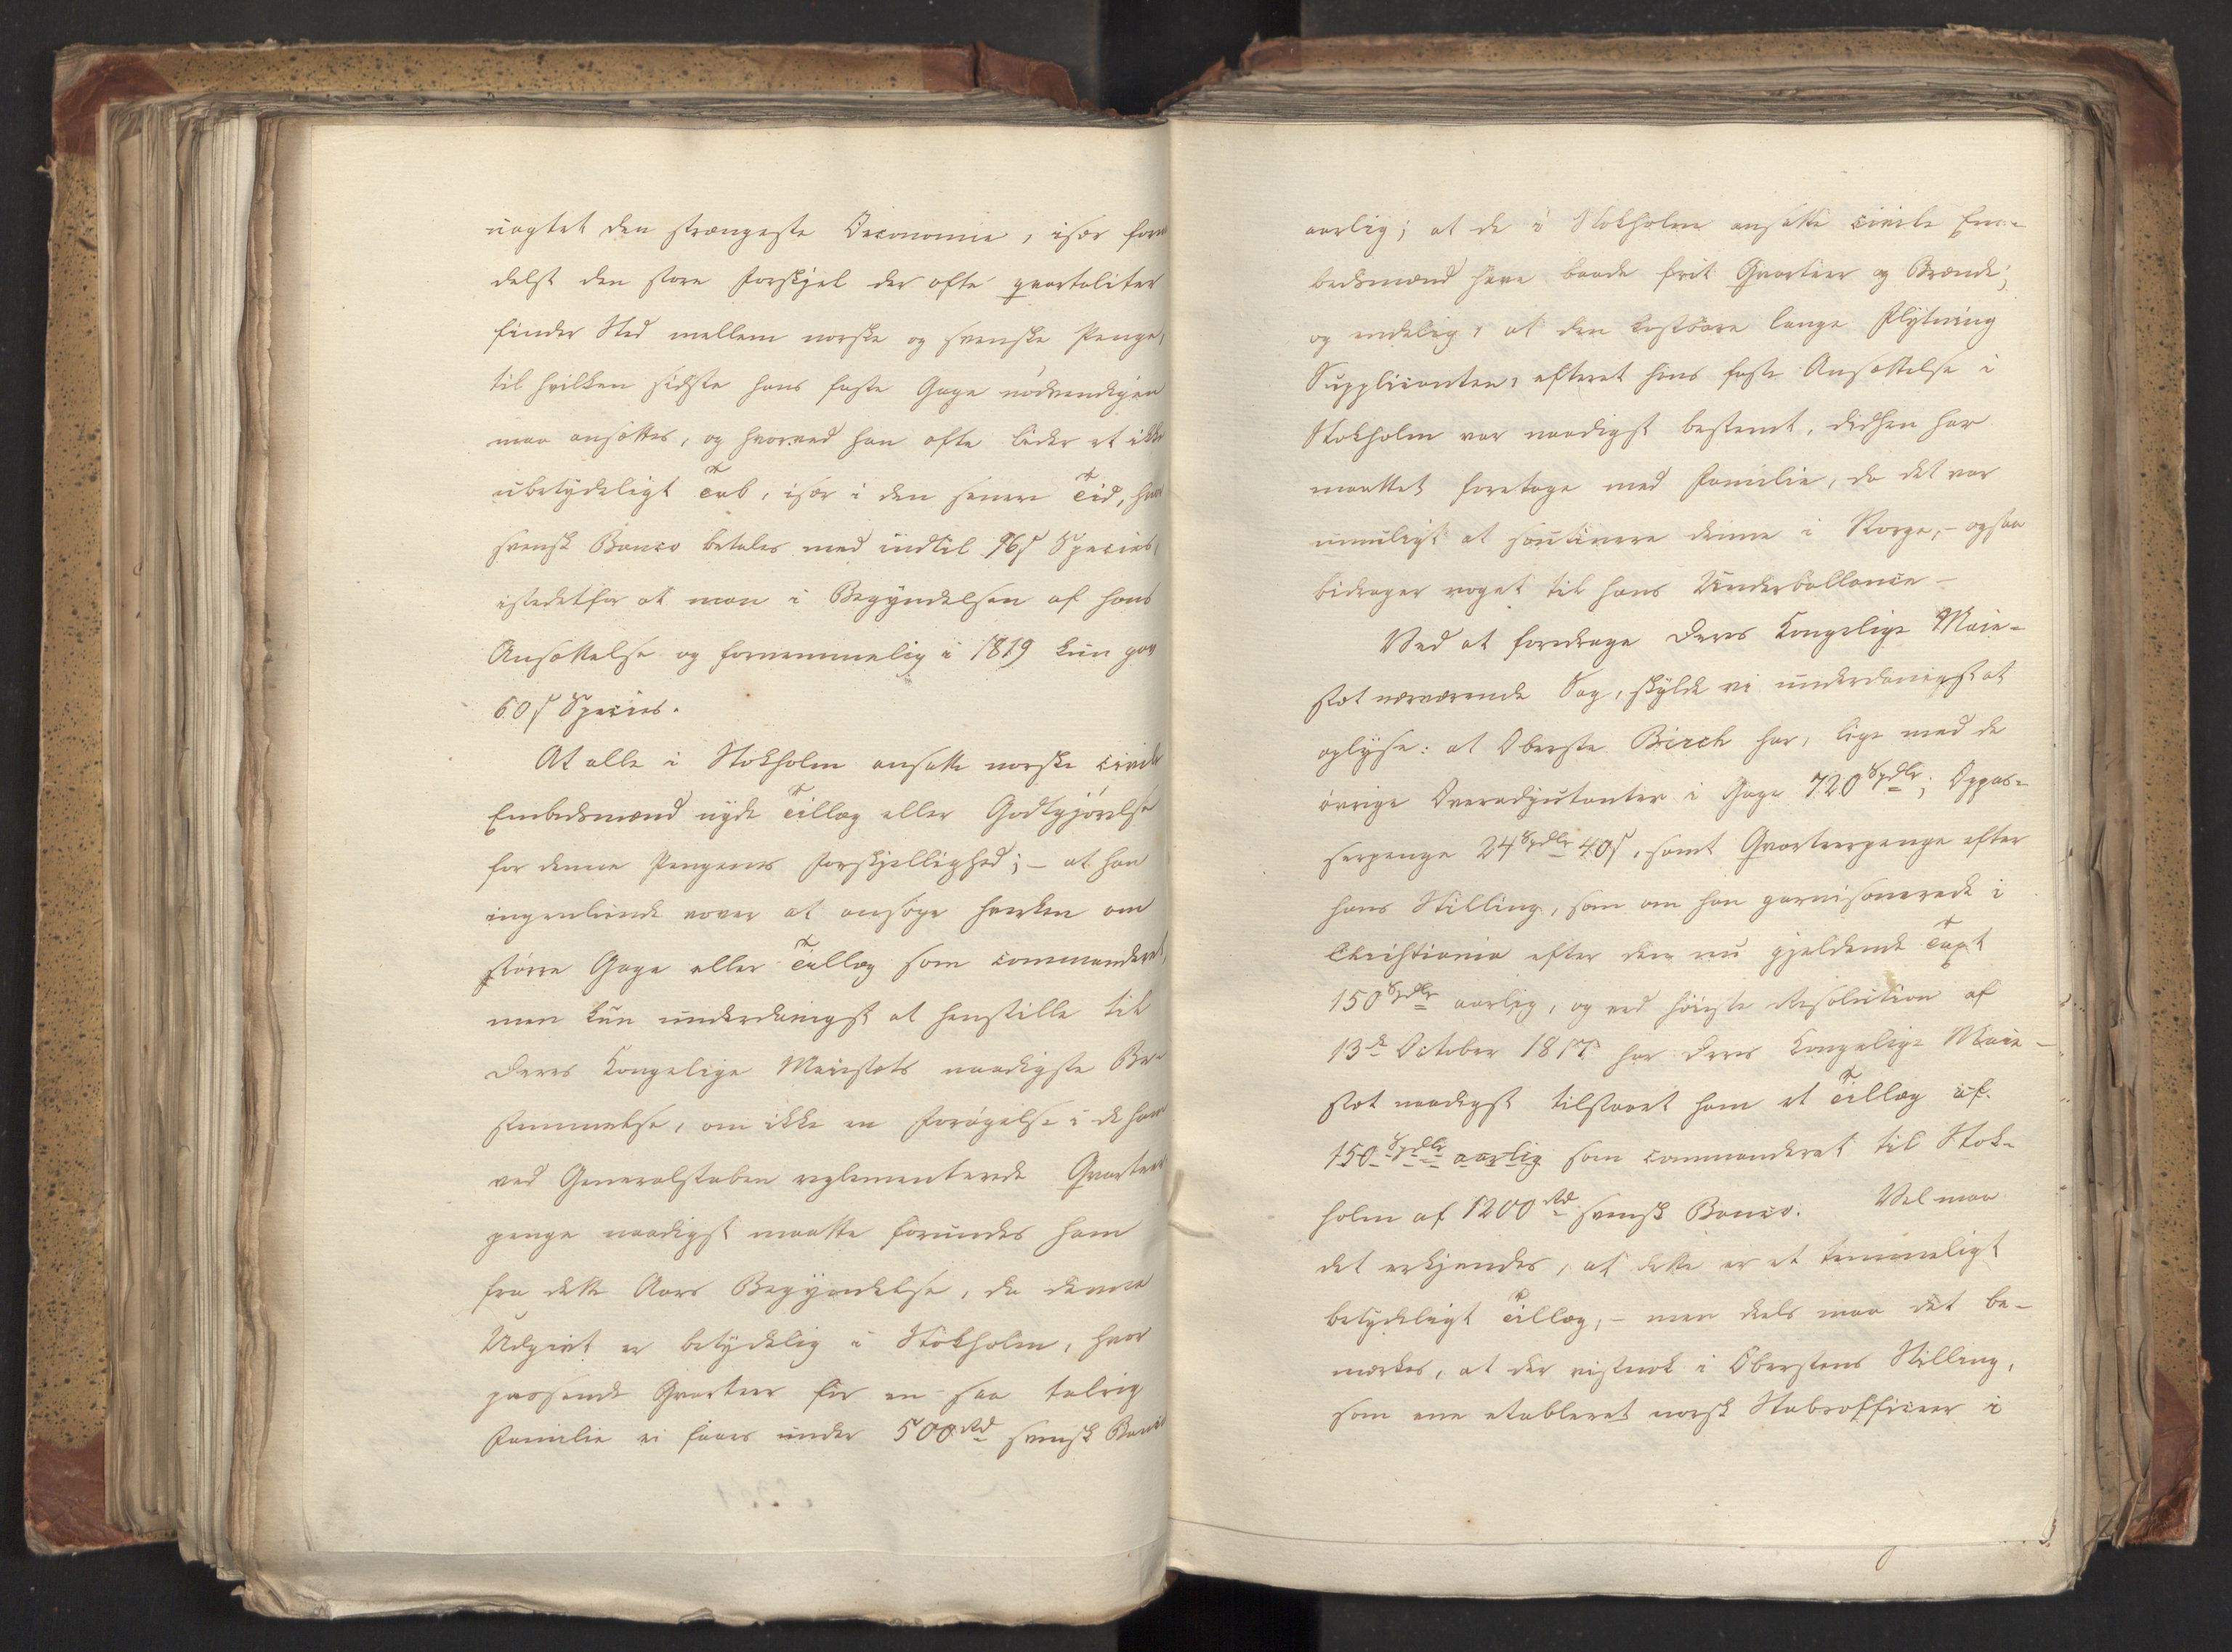 uagtet den strængeste Oeconomie, især form
delst den store Forskjel der ofte qvartaliter
finder Sted mellem norske og svenske Penge,
til hvilken sidste hans faste Gage nödvendigen
maa ansættes, og hvorved han ofte lider et ikke
ubetydeligt Tab, især i den senere Tid, hvor
svensk Banco betales med indtil 96 s Species,
istedetfor at man i Begyndelsen af hans
Ansættelse og fornemmelig i 1819 kun gav
60 s Species.
At alle i Stokholm ansatte norske civile
Embedsmænd nyde Tillæg eller Godtgjörelse
for denne Pengenes Forskjellighed; – at han
ingenlunde vover at ansöge hverken om
större Gage eller Tillæg som commanderet,
men kun underdanigst at henstille til
Deres Kongelige Maiestæts naadigste Be-
stemmelse, om ikke en Forögelse i de ham
ved Generalstaben reglementerede Qvarteer
penge naadigst maatte forundes ham
fra dette Aars Begyndelse, da denne
Udgivt er betydelig i Stokholm, hvor
passende Qvarteer for en saa talrig
Familie ei faaes under 500 Rd svensk Banco
aarlig; at de i Stokholm ansatte civile Em-
bedsmænd have baade frit Qvarteer og Brænde;
og endelig, at den kostbare lange Flytning
Supplicanten, efterat hans faste Ansættelse i
Stokholm var naadigst bestemt, didhen har
maattet foretage med Familie, da det var
umuligt at soutinere denne i Norge, – ogsaa
bidrager noget til hans Underballance –
Ved at foredrage Deres Kongelige Maie-
stæt nærværende Sag, skylde vi underdanigst at
oplyse: at Oberste Birch har, lige med de
övrige Overadjutanter i Gage 720 Spdlr; Oppas-
serpenge 24 Spdlr 40 s, samt Qvarteerpenge efter
hans Stilling, som om han garnisonerede i
Christiania efter den nu gjeldende Taxt
150 Spdlr aarlig, og ved höieste Resolution af
13de October 1817 har Deres Kongelige Maie-
stæt naadigst tilstaaet ham et Tillæg af
150 Spdlr aarlig som commanderet til Stok-
holm af 1200 Rd svensk Banco. Vel maa
det erkjendes, at dette er et temmeligt
betydeligt Tillæg, – men deels maa det be-
mærkes, at der vistnok i Oberstens Stilling,
som ene etableret norsk Stabsofficeer i